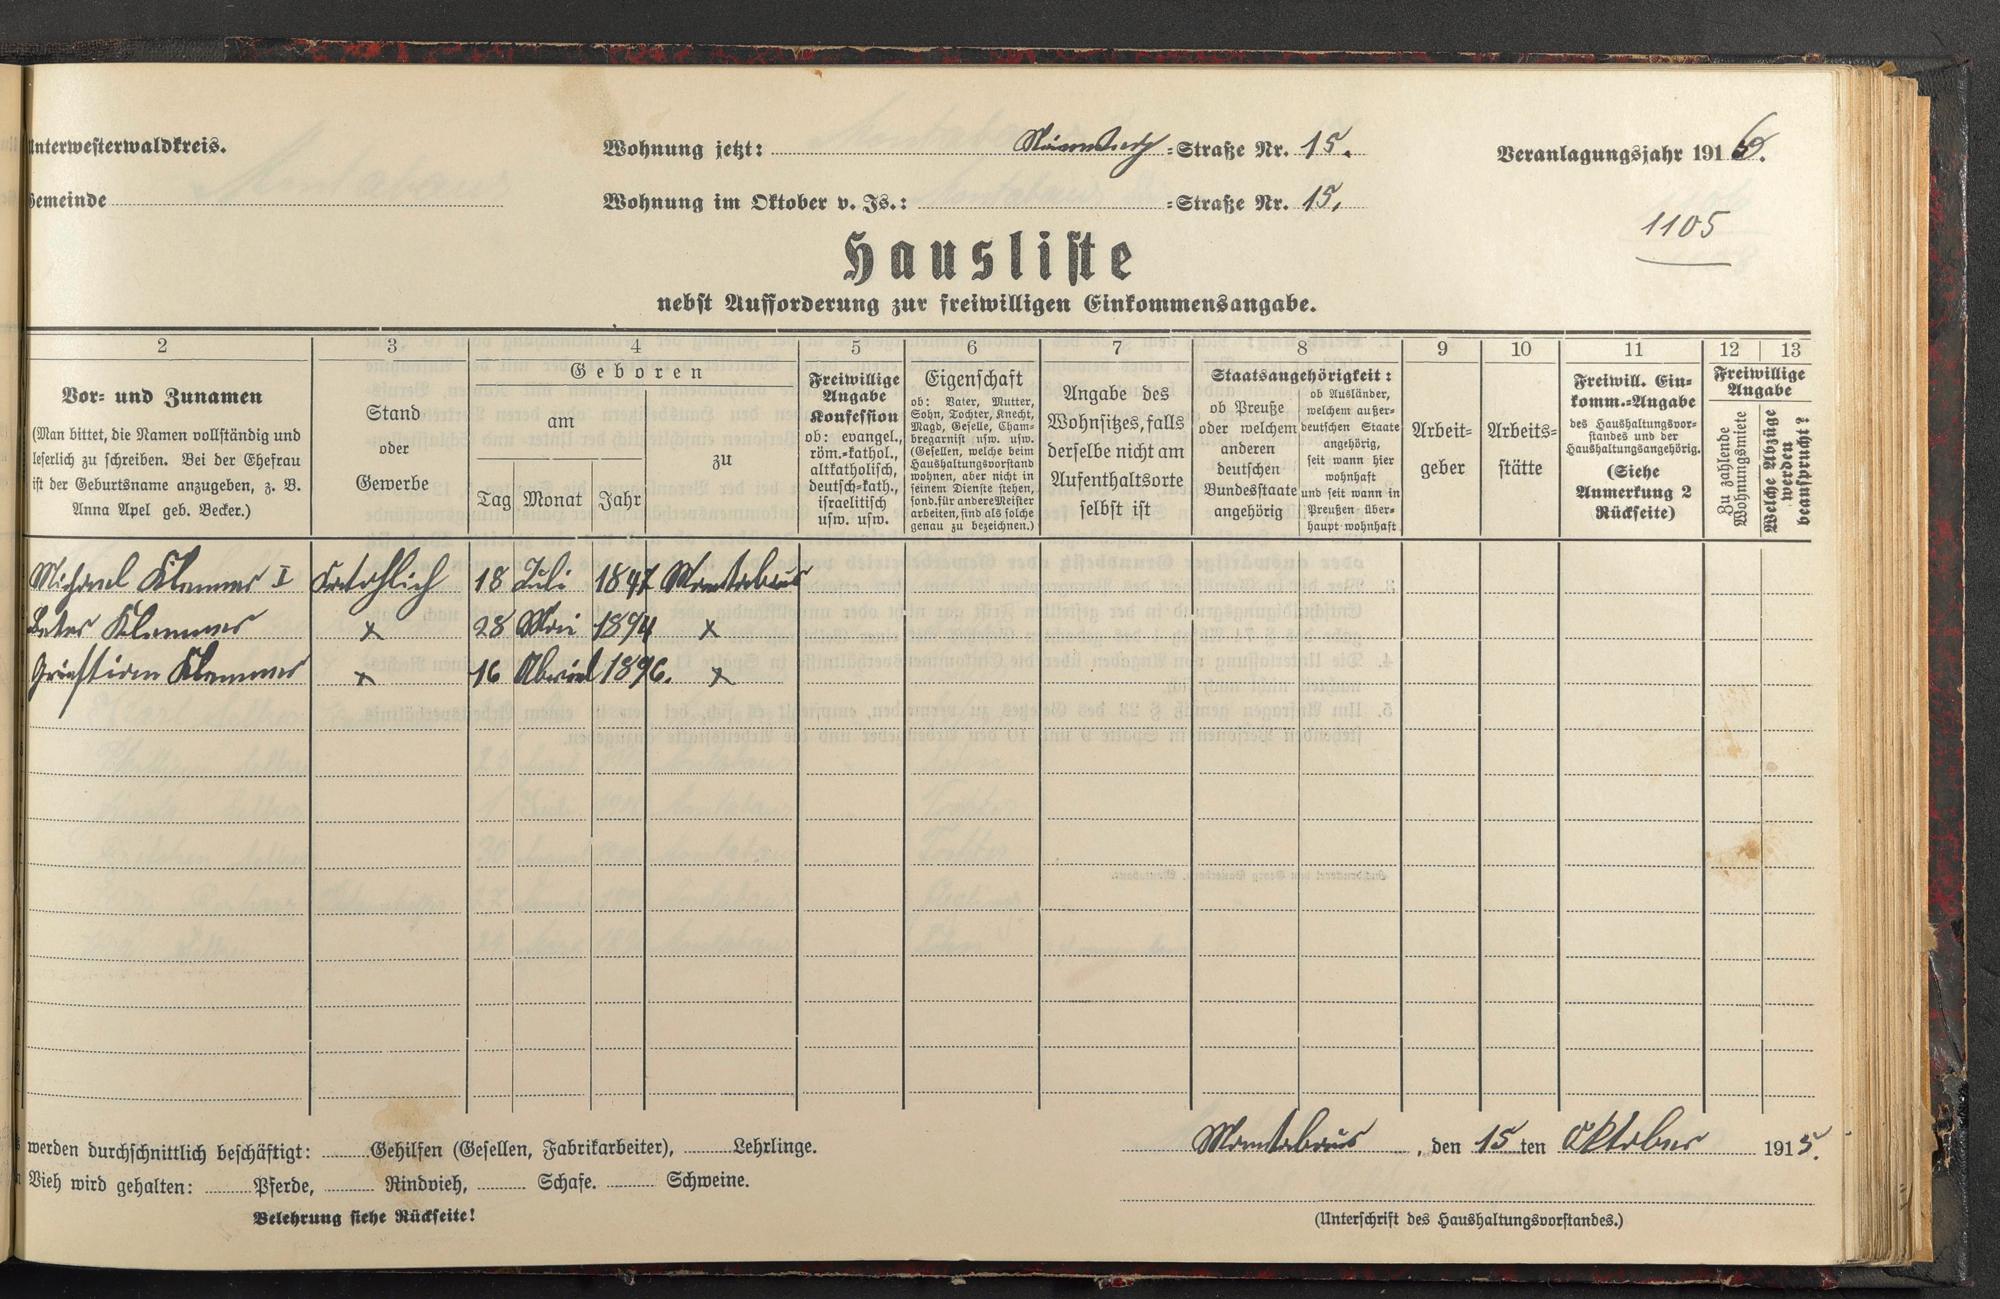 Unterwesterwaldkreis.
Wohnung jetzt: -Straße Nr. 15.
Veranlagungsjahr 1916.
Gemeinde
Wohnung im Oktober v. Js.: -Straße Nr. 15.
1105
Hausliste
nebst Aufforderung zur freiwilligen Einkommensangabe.
2 3 4 5 6 7 8 9 10 11 12 13
Vor- und Zunamen
(Man bittet, die Namen vollständig und
leserlich zu schreiben. Bei der Ehefrau
ist der Geburtsname anzugeben, z. B.
Anna Apel geb. Becker.)
Stand
oder
Gewerbe
Geboren
am
Tag Monat Jahr
zu
Freiwillige
Angabe
Konfession
ob: evangel.,
röm.-kathol.,
altkatholisch,
deutsch-kath.,
israelitisch
usw. usw.
Eigenschaft
ob: Vater, Mutter,
Sohn, Tochter, Knecht,
Magd, Geselle, Cham-
bregarnist usw. usw.
(Gesellen, welche beim
Haushaltungsvorstand
wohnen, aber nicht in
seinem Dienste stehen,
sond. für andere Meister
arbeiten, sind als solche
genau zu bezeichnen.)
Angabe des
Wohnsitzes, falls
derselbe nicht am
Aufenthaltsorte
selbst ist
Staatsangehörigkeit:
ob Preuße
oder welchem
anderen
deutschen
Bundesstaate
angehörig
ob Ausländer,
welchem außer-
deutschen Staate
angehörig,
seit wann hier
wohnhaft
und seit wann in
Preußen über-
haupt wohnhaft
Arbeit-
geber
Arbeits-
stätte
Freiwill. Ein-
komm.-Angabe
des Haushaltungsvor-
standes und der
Haushaltungsangehörig.
(Siehe
Anmerkung 2
Rückseite)
Freiwillige
Angabe
Zu zahlende
Wohnungsmiete
Welche Abzüge
werden
beansprucht?
Michael Klemmer I 18 Juli 1847 Montabaur
Peter Klemmer x 28 Mai 1894 x
Klemmer x 16 1896. x
werden durchschnittlich beschäftigt: Gehilfen (Gesellen, Fabrikarbeiter), Lehrlinge.
Montabaur, den 15 ten Oktober 1915.
Vieh wird gehalten: Pferde, Rindvieh, Schafe. Schweine.
Belehrung siehe Rückseite!
(Unterschrift des Haushaltungsvorstandes.)